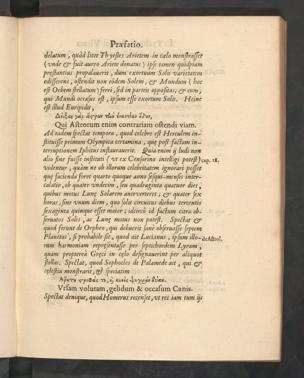 Præfatio.
delatum, quòd licet Thyestes Arietem in cælo monstrasset
(vnde & fuit aureo Ariete donatus) ipse tamen quidpiam
præstantius propalauerit, dum exortuum Solis varietatem
edisserens, ostendit non eodem Solem, & Mundum (hoc
est Orbem stellatum) ferri, sed in partes oppositas; & cum,
qui Mundi occasus est, ipsum esse exortum Solis. Hinc
est illud Euripidis,
Qui Astrorum enim contrariam ostendi viam.
Ad eadem spectat tempora, quod celebre est Herculem in-
stituisse primum Olympica certamina, quæ post factam in-
terruptionem Iphitus restaurauerit. Quia enim ij ludi non
alio sine fuisse instituti (vt ex Censorino intelligi potest)
cap. 18.
videntur, quàm ne ob illarum celebritatem ignorari posset
quæ facienda foret quarto quoque anno sesqui-mensis inter-
calatio, ob quater vndecim, seu quadraginta quatuor dies,
quibus motus Lunæ Solarem anteverteret; & quater sex
horas, sine vnum diem, quo solis circuitus diebus tercentis
sexaginta quinque esset maior; idcircò id factum citra ob-
seruatos Solis, ac Lunæ motus non potest. Spectat &
quod ferunt de Orpheo, qui debuerit sanè obseruasse septem
Planetas; si probabile sit, quod ait Lucianus, ipsum illo-
rum harmoniam repræsentasse per septichordem Lyram;
de Astrol.
quam propterea Græci in cælo designauerint per aliquot
stellas. Spectat, quod Sophocles de Palamede ait, qui &
cælestia monstrarit, & speciatim
Vrsam volutam, gelidum & occasum Canis.
Spectat denique, quod Homerus recenset, vt rex iam tum iis